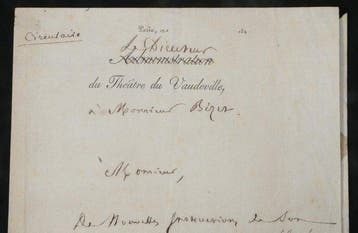 Circulaire
Paris, ce 18
Le Directeur
Administration
du Théâtre du Vaudeville,
à Monsieur Bizet
à Monsieur,
De Nouvelles instructions de Son